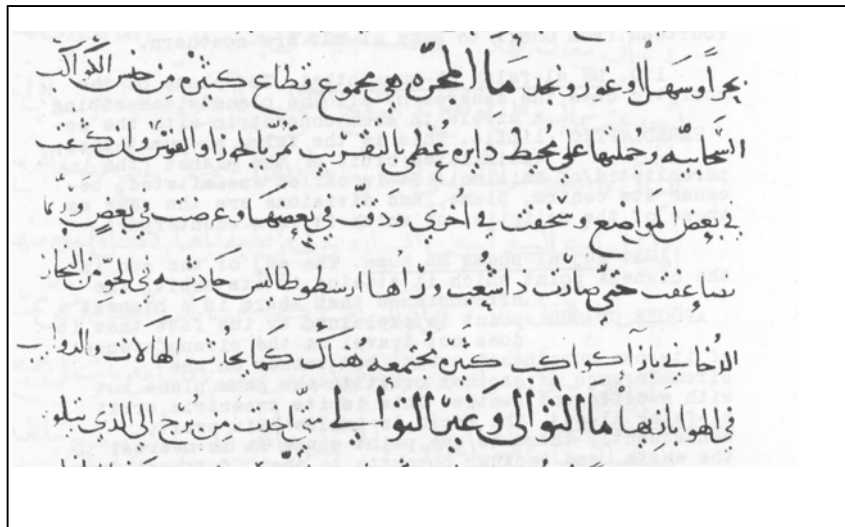 بحراً وسهلاً وغور ونجد ما المجرّة هي مجموع قطاع كثيرة من الكواكب
السّحابيّه وجملتها على محيط دايره عظمى بالتقريب تمرّ بالجوزا والقوس وان كثفت
في بعض المواضع وسخفت في اخرى ودقّت في بعضها وعرضت في بعض وربّما
تشاعبت حتى صارت ويراها ارسطوطالس حادثه في البخارى
الدخانى بازآ كواكب كثيره مجتمعه هناك كما يحدث الهالات والذوايب
في الهوا بازآئها ما التوالى وغير التوالى مهما اخذت من برج الى الذى يتلوه